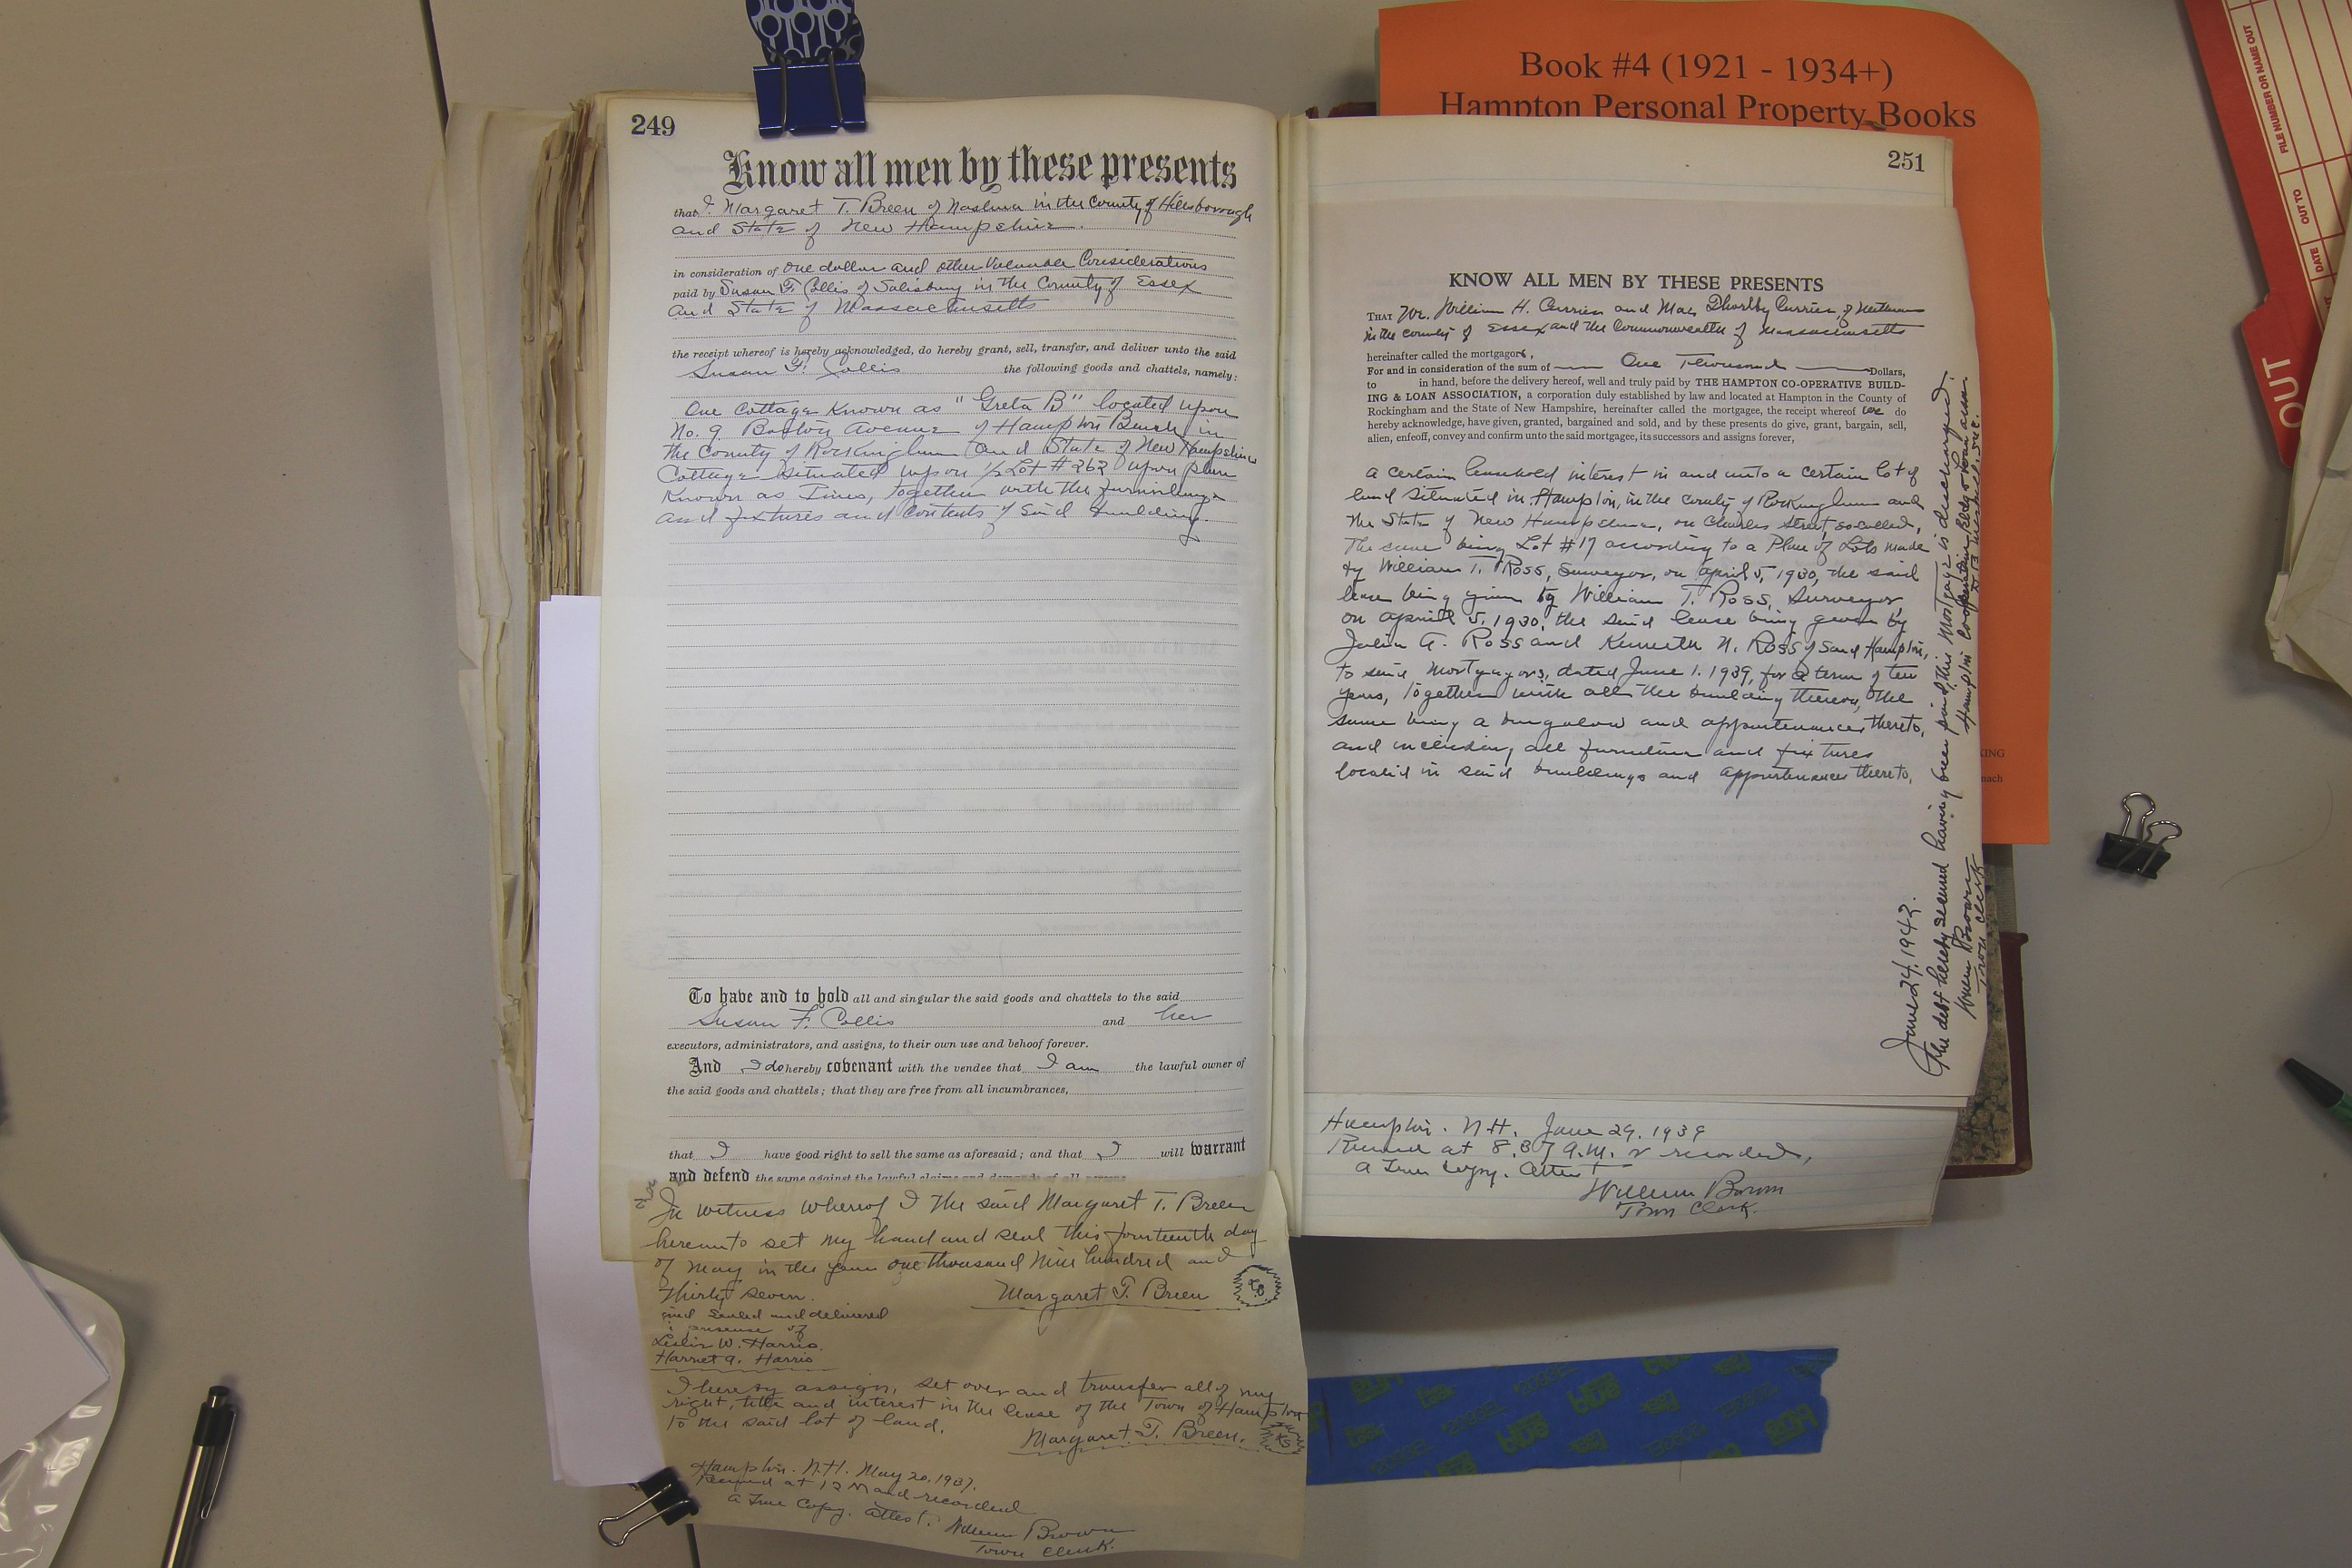 Book #4 (1921 - 1934+)
Hampton Personal Property Books
FILE NUMBER OR NAME OUT
DATE
OUT TO
OUT
249
Know all men by these presents
that I, Margaret T. Breen of Nashua in the County of Hillsborough
and State of New Hampshire.
in consideration of One dollar and other Valuable Considerations
paid by Susan F. Collis of Salisbury in the County of Essex
and State of Massachusetts
the receipt whereof is hereby acknowledged, do hereby grant, sell, transfer, and deliver unto the said
Susan F. Collis the following goods and chattels, namely:
One Cottage Known as "Greta B" located upon
No. 9 Boston Avenue of Hampton Beach in
the County of Rockingham and State of New Hampshire
Cottage situated upon 1/2 Lot # 262 upon plan
Known as Ines, together with the furnishings
and fixtures and contents of said building.
To have and to hold all and singular the said goods and chattels to the said
Susan F. Collis and her
executors, administrators, and assigns, to their own use and behoof forever.
And I do hereby covenant with the vendee that I am the lawful owner of
the said goods and chattels; that they are free from all incumbrances,
that I have good right to sell the same as aforesaid; and that I will warrant
and defend the same against the lawful claims and demands of all persons
In witness whereof I the said Margaret T. Breen
hereunto set my hand and seal this fourteenth day
of May in the year one thousand nine hundred and
Thirty seven.
Margaret T. Breen
and Sealed and delivered
presense of
Leslie W. Harris.
Harriet A. Harris
I hereby assign, set over and transfer all of my
right, title and interest in the lease of the Town of Hampton
to the said lot of land.
Margaret T. Breen.
Hampton. N.H. May 20, 1937.
Received at 12 M and recorded
A True Copy. Attest.
William Brown
Town Clerk.
251
KNOW ALL MEN BY THESE PRESENTS
THAT We, William H. Currier and Mae Dhorlby Currier, of Methuen
in the county of Essex and the Commonwealth of Massachusetts
hereinafter called the mortgagors,
For and in consideration of the sum of One Thousand Dollars,
to in hand, before the delivery hereof, well and truly paid by THE HAMPTON CO-OPERATIVE BUILD-
ING & LOAN ASSOCIATION, a corporation duly established by law and located at Hampton in the County of
Rockingham and the State of New Hampshire, hereinafter called the mortgagee, the receipt whereof we do
hereby acknowledge, have given, granted, bargained and sold, and by these presents do give, grant, bargain, sell,
alien, enfeoff, convey and confirm unto the said mortgagee, its successors and assigns forever,
a certain leasehold interest in and unto a certain lot of
land situated in Hampton, in the county of Rockingham and
the State of New Hampshire, on Charles Street, so-called,
The same being Lot #17 according to a Plan of Lots made
by William T. Ross, Surveyor, on April 5, 1930, the said
lease being given by William T. Ross, Surveyor,
on April 5, 1930, the said lease being given by
Julia A. Ross and Kenneth N. Ross of said Hampton,
to said Mortgagors, dated June 1. 1939, for a term of ten
years, Together with all the building thereon, the
same being a bungalow and appurtenances thereto,
and including all furniture and fixtures
located in said buildings and appurtenances thereto,
June 24, 1942.
The debt hereby secured having been paid, this Mortgage is discharged.
Hampton Cooperative Bldg & Loan Assn.
William Brown
Town Clerk
Hampton. N.H. June 29, 1939
Received at 8.37 A.M. & recorded,
A True Copy. Attest
William Brown
Town Clerk.